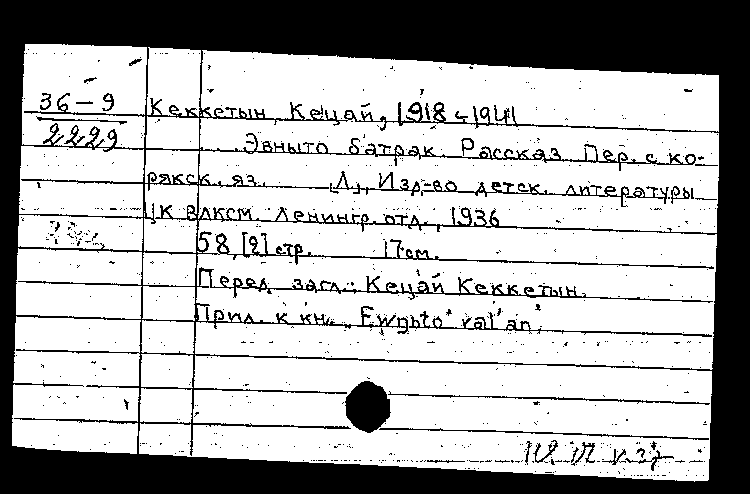 36-9
2229
Кеккетын, Кецай, 1918-1941
Эвныто батрак. Рассказ. Пер. с ко-
рякск. яз. Л., Изд-во детск. литературы
ЦК ВЛКСМ. Ленингр. отд., 1936
58, [2] стр. 17 см.
Перед загл.: Кецай Кеккетын.
Прил. к кн. "Ewŋьto val'an"